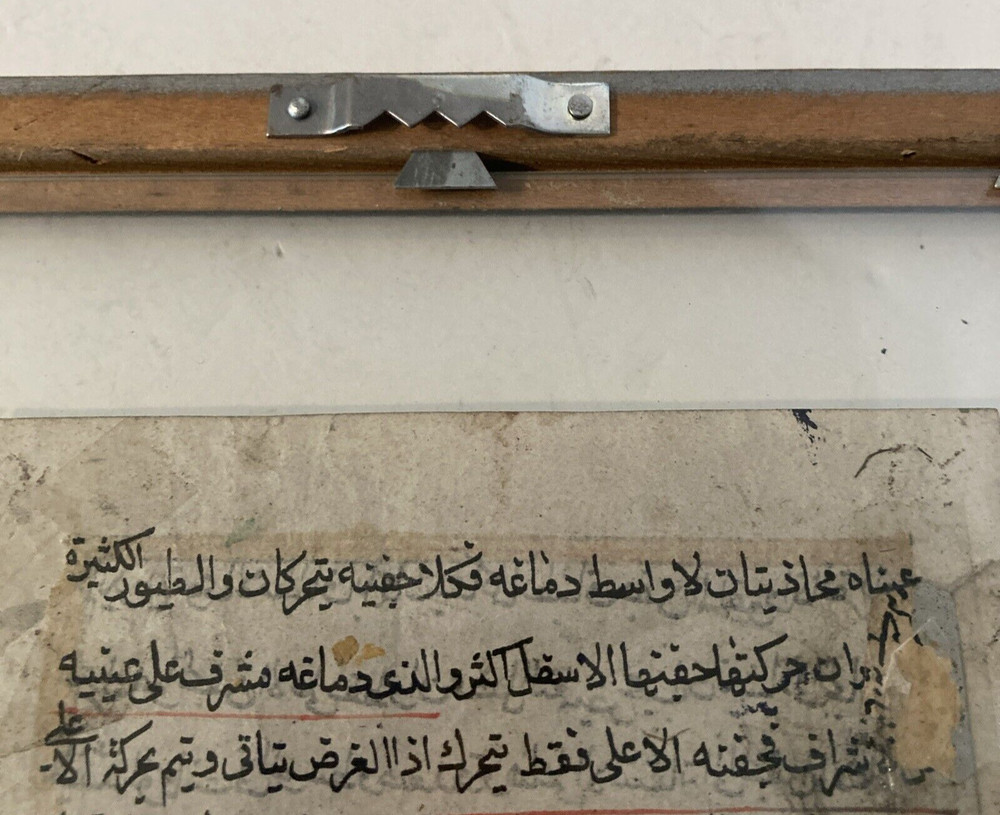 عيناه محاذيتان لاواسط دماغه فكلا جفنيه يتحركان والطيور الكثيرة
وان حركتها جفنها الاسفل اكثر والذى دماغه مشرف على عينيه
اشراف فجفنه الاعلى فقط يتحرك اذ الغرض يتاتى ويتم بحركة الاعلى